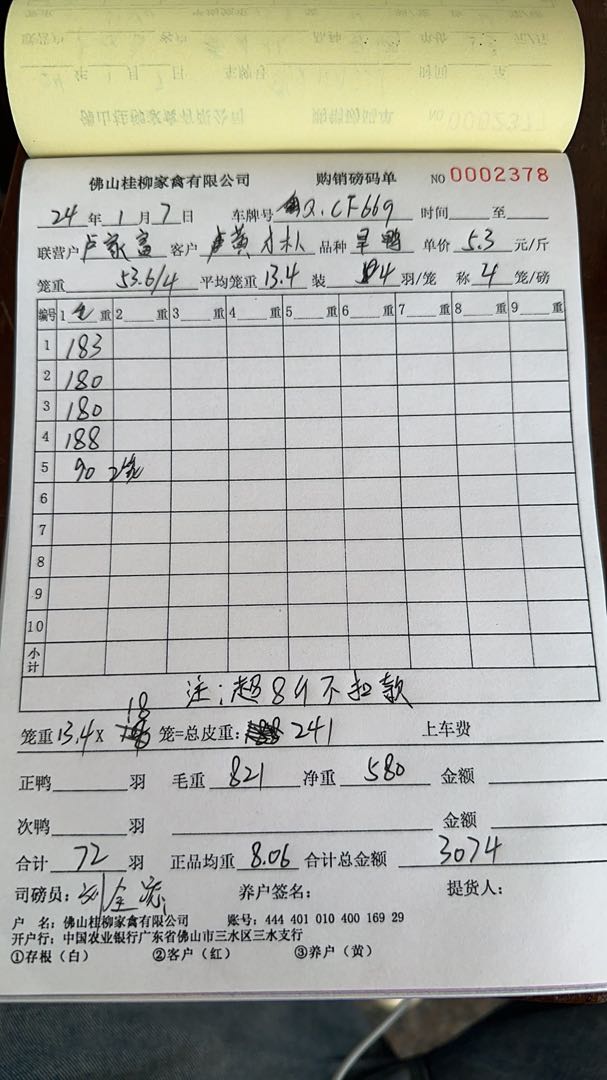 佛山桂柳家禽有限公司 购销磅码单 NO 0002378
24 年 1 月 7 日 车牌号 Q.CF669 时间 至
联营户 卢家富 客户 黄才朴 品种 旱鸭 单价 5.3 元/斤
笼重 53.6/4 平均笼重 13.4 装 4 羽/笼 称 4 笼/磅
编号 1 重 2 重 3 重 4 重 5 重 6 重 7 重 8 重 9 重
1 183
2 180
3 180
4 188
5 90 2笼
6
7
8
9
10
小计
注:超8斤不扣款
18
笼重 13.4 X 笼=总皮重: 241 上车费
正鸭 羽 毛重 821 净重 580 金额
次鸭 羽 金额
合计 72 羽 正品均重 8.06 合计总金额 3074
司磅员: 养户签名: 提货人:
户 名: 佛山桂柳家禽有限公司 账号: 444 401 010 400 169 29
开户行: 中国农业银行广东省佛山市三水区三水支行
①存根(白) ②客户(红) ③养户(黄)